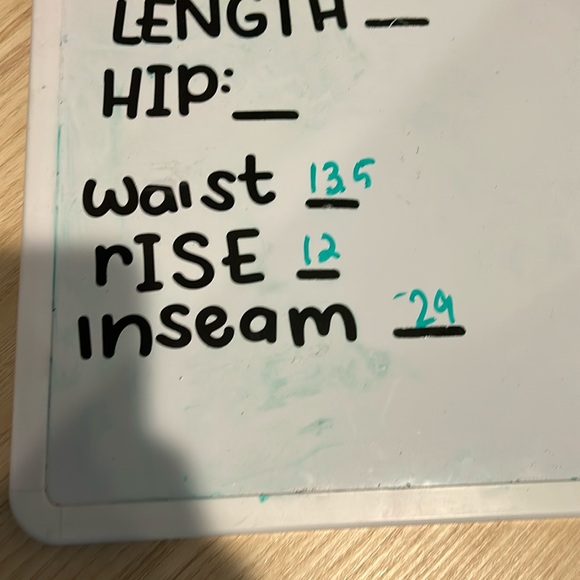 LENGTH __
HIP: __
waist 13.5
rISE 12
inseam 29